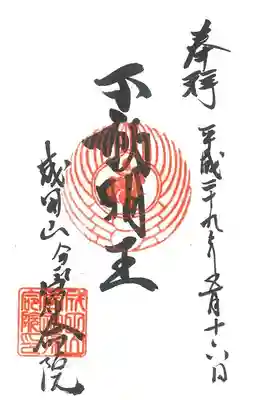 奉拝 平成二十九年五月十六日
不動明王
成田山 院